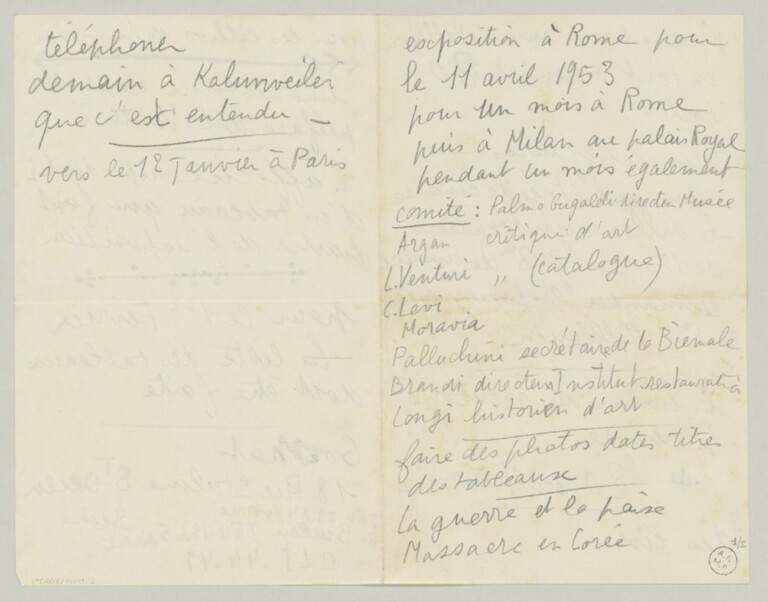 téléphoner
demain à Kahnweiler
que c'est entendu –
vers le 12 Janvier à Paris
exposition à Rome pour
le 11 avril 1953
pour un mois à Rome
puis à Milan au palais Royal
pendant un mois également
comité : Palma Bugaldi directeu Musée
Argan critique d'art
L. Venturi ,, (catalogue)
C. Levi
Moravia
Palluchini secrétaire de la Biennale
Brandi directeur Institut restauratio
Longi historien d'art
faire des photos dates titres
des tableaux
La guerre et la paise
Massacre en Corée
1/2